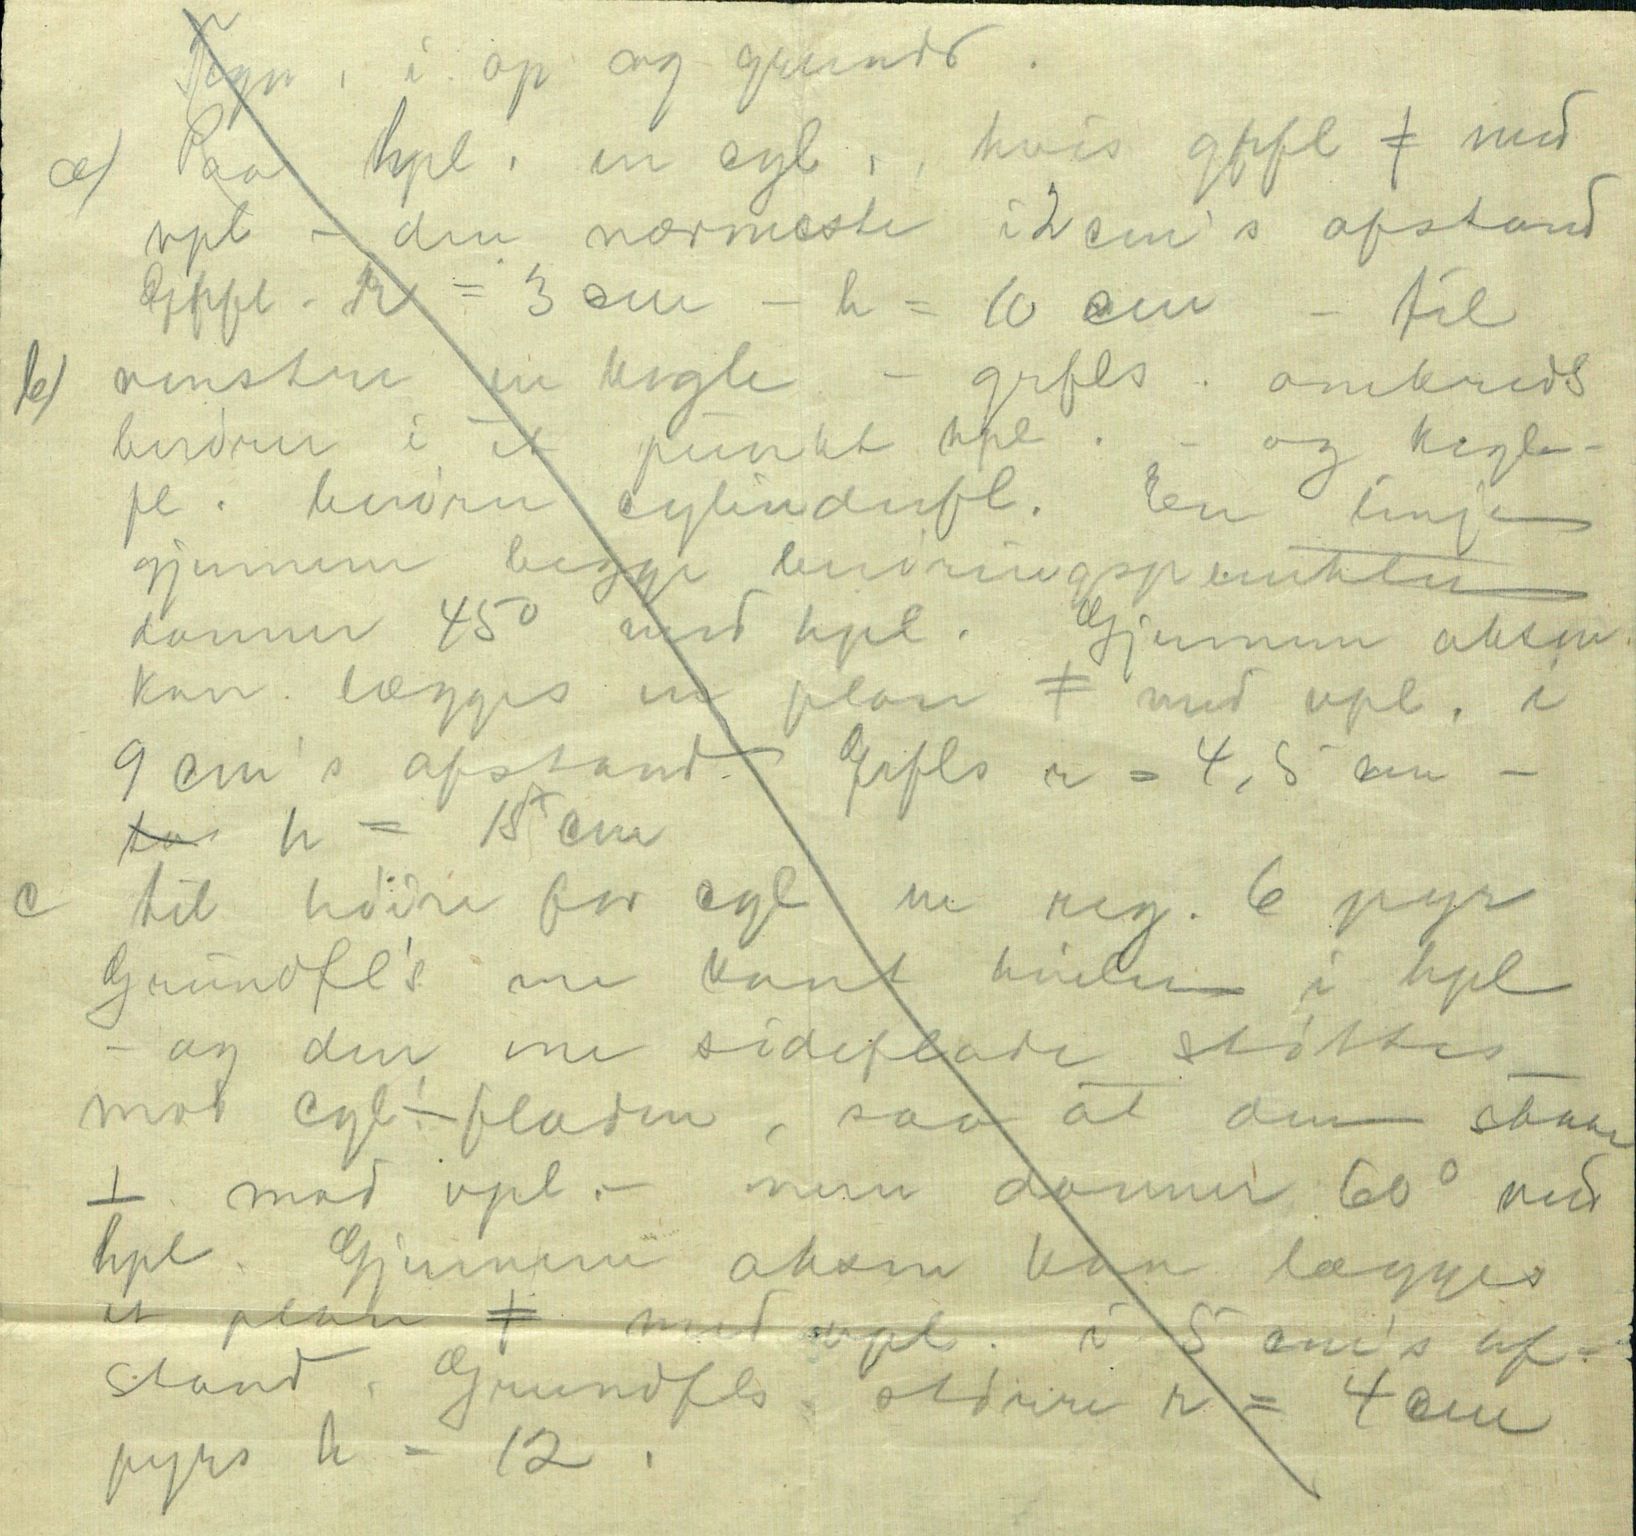 Tegn. i op og grundr.
a) Paa hpl. en cyl., hvis grfl ⧧ med
vpl – den nærmeste i 2 cm's afstand
Grfl. r = 3 cm – h = 10 cm – til
b) venstre en kegle – grfls. omkreds
berörer i et punkt hpl. – og kegle-
fl. berörer cylinderfl. En linje
gjennem begge beröringspunkter
danner 45° med hpl. Gjennem aksen
kan lægges en plan ⧧ med vpl. i
9 cm's afstand. Grfls r = 4,5 cm –
h = 15 cm
c til höire for cyl en reg. 6 pyr
Grundfl's ene kant hviler i hpl
– og den ene sideflade stöttes
mod cyl.-fladen, saa at den staar
⊥ mod vpl. – men danner 60° med
hpl. Gjennem aksen kan lægges
et plan ⧧ med vpl. i 5 cm's af-
stand. Grundfls. större r = 4 cm
pyrs h = 12.